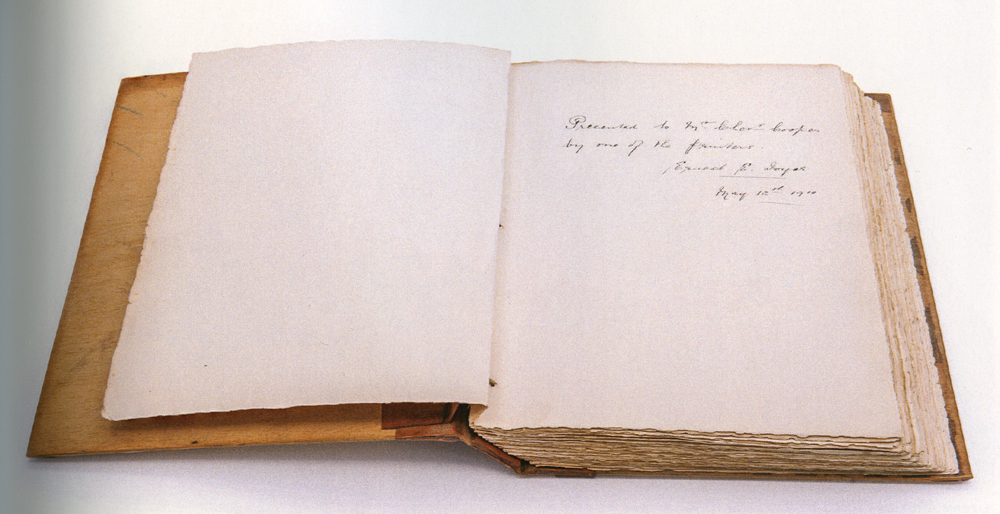 Presented to Mr Cooper
by one of the Printers.
Ernest E. Joyce
May 1910